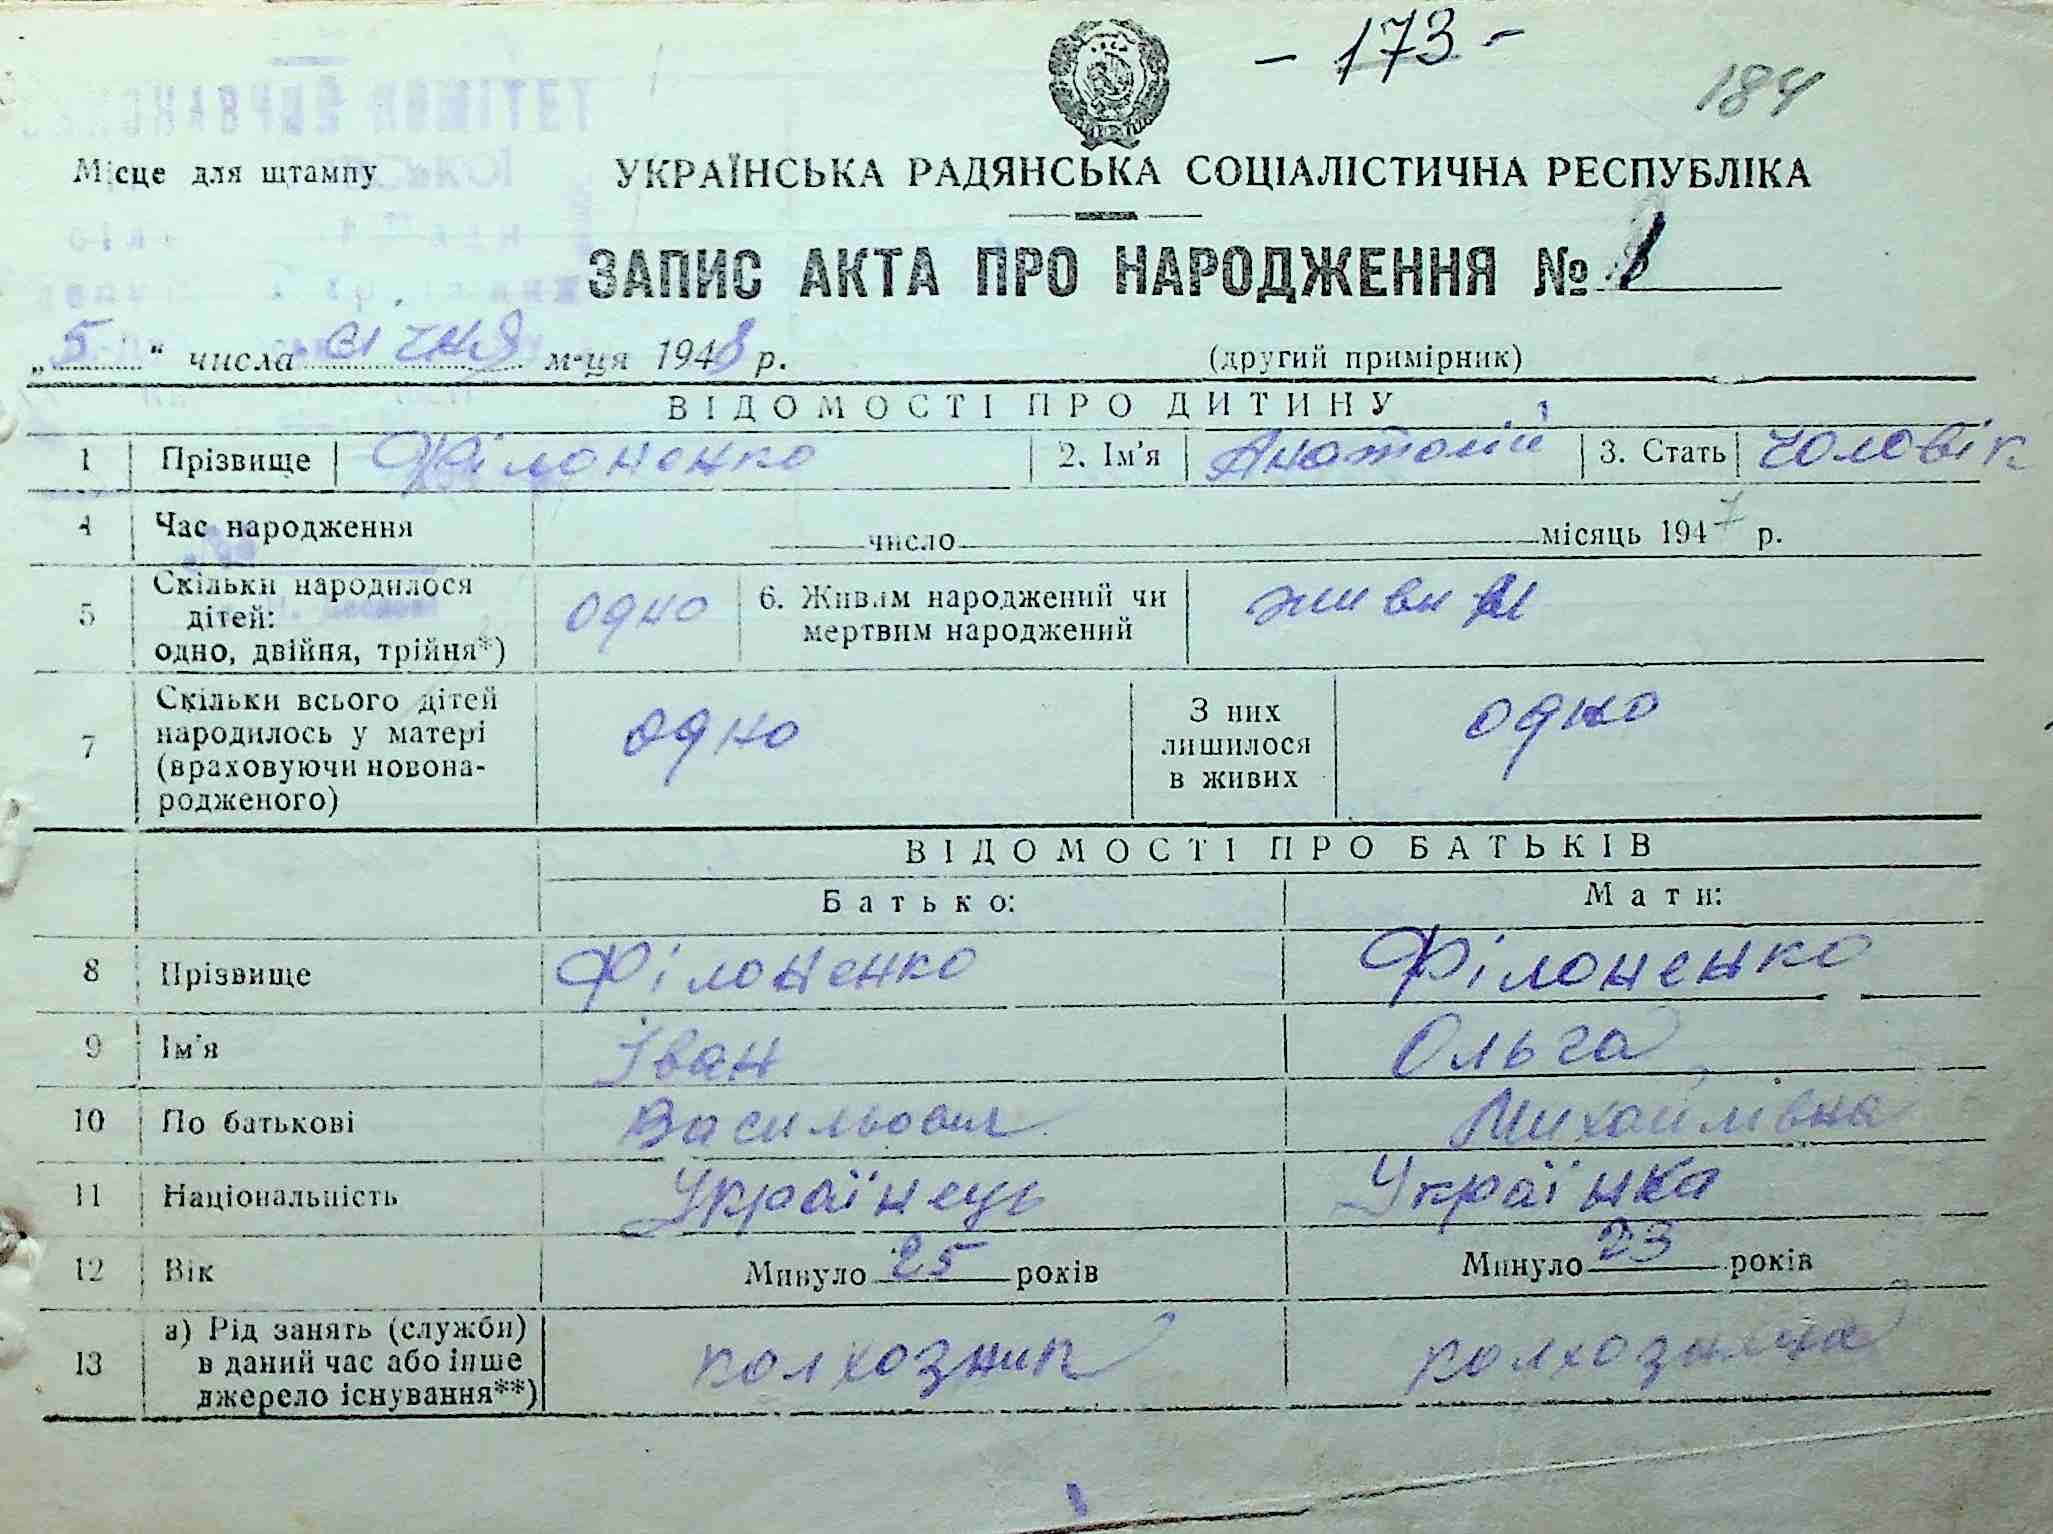 - 173 -
184
Місце для штампу
УКРАЇНСЬКА РАДЯНСЬКА СОЦІАЛІСТИЧНА РЕСПУБЛІКА
ЗАПИС АКТА ПРО НАРОДЖЕННЯ № 1
„5“ числа січня м-ця 1948 р.
(другий примірник)
ВІДОМОСТІ ПРО ДИТИНУ
1 Прізвище Філоненко 2. Ім'я Анатолій 3. Стать чоловік
4 Час народження число місяць 1947 р.
5 Скільки народилося дітей: одно, двійня, трійня*) одно 6. Живим народжений чи мертвим народжений живим
7 Скільки всього дітей народилось у матері (враховуючи новонародженого) одно З них лишилося в живих одно
ВІДОМОСТІ ПРО БАТЬКІВ
Батько: Мати:
8 Прізвище Філоненко Філоненко
9 Ім'я Іван Ольга
10 По батькові Васильович Михайлівна
11 Національність Українець Українка
12 Вік Минуло 25 років Минуло 23 років
13 а) Рід занять (служби) в даний час або інше джерело існування**) колхозник колхозниця